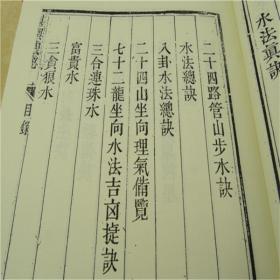 水法真訣
二十四路管山步水訣
水法總訣
八卦水法總訣
二十四山坐向理氣備覽
七十二龍坐向水法吉凶㨗訣
三合連珠水
富貴水
三貪狼水
目錄